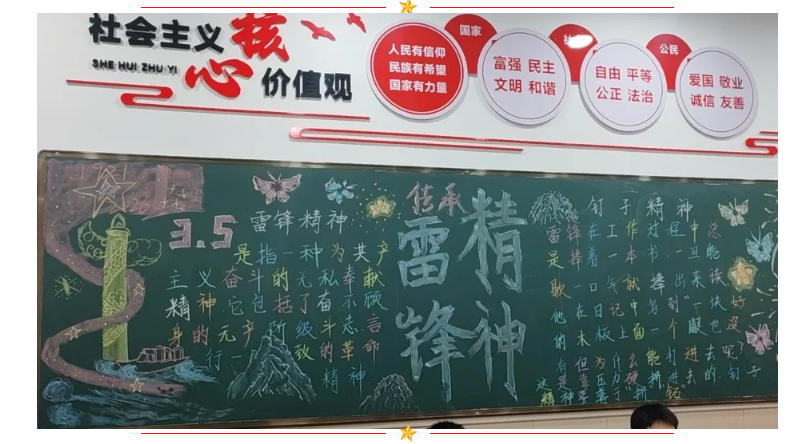 社会主义核心价值观
SHE HUI ZHU YI
人民有信仰
民族有希望
国家有力量
国家
富强 民主
文明 和谐
社
自由 平等
公正 法治
公民
爱国 敬业
诚信 友善
3.5
雷锋精神
是指一种为共产
主义奋斗的无私奉献
精神 它包括了奋不顾
身的无产阶级的斗志 言
行一致的革命
精神
传承
雷锋精神
钉子精神
雷锋在工作过程中总
是捧着一本书 一旦能
歇一口气就捧出来读
他的日记中写到 一块好
在木板上面一个眼也没
有 但为什么能钉进去呢
是靠压力硬挤进去的 钉子
这
精神